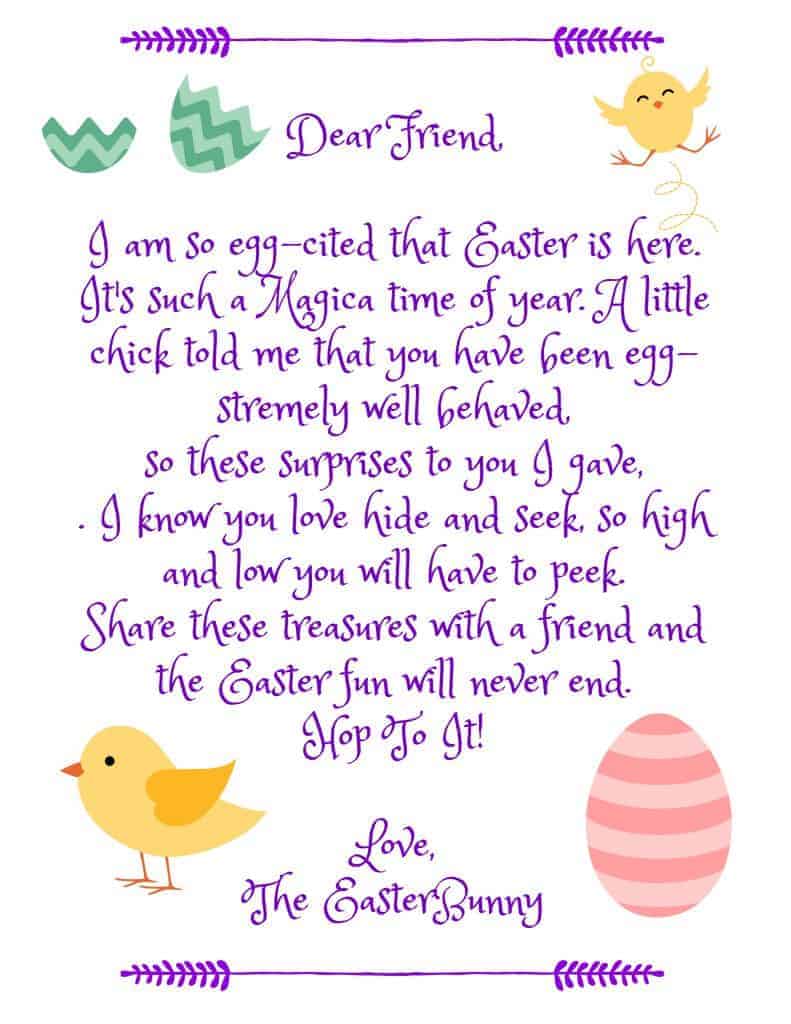 Dear Friend,
I am so egg-cited that Easter is here.
It's such a Magica time of year. A little
chick told me that you have been egg-
stremely well behaved,
so these surprises to you I gave,
. I know you love hide and seek, so high
and low you will have to peek.
Share these treasures with a friend and
the Easter fun will never end.
Hop To It!
Love,
The Easter Bunny